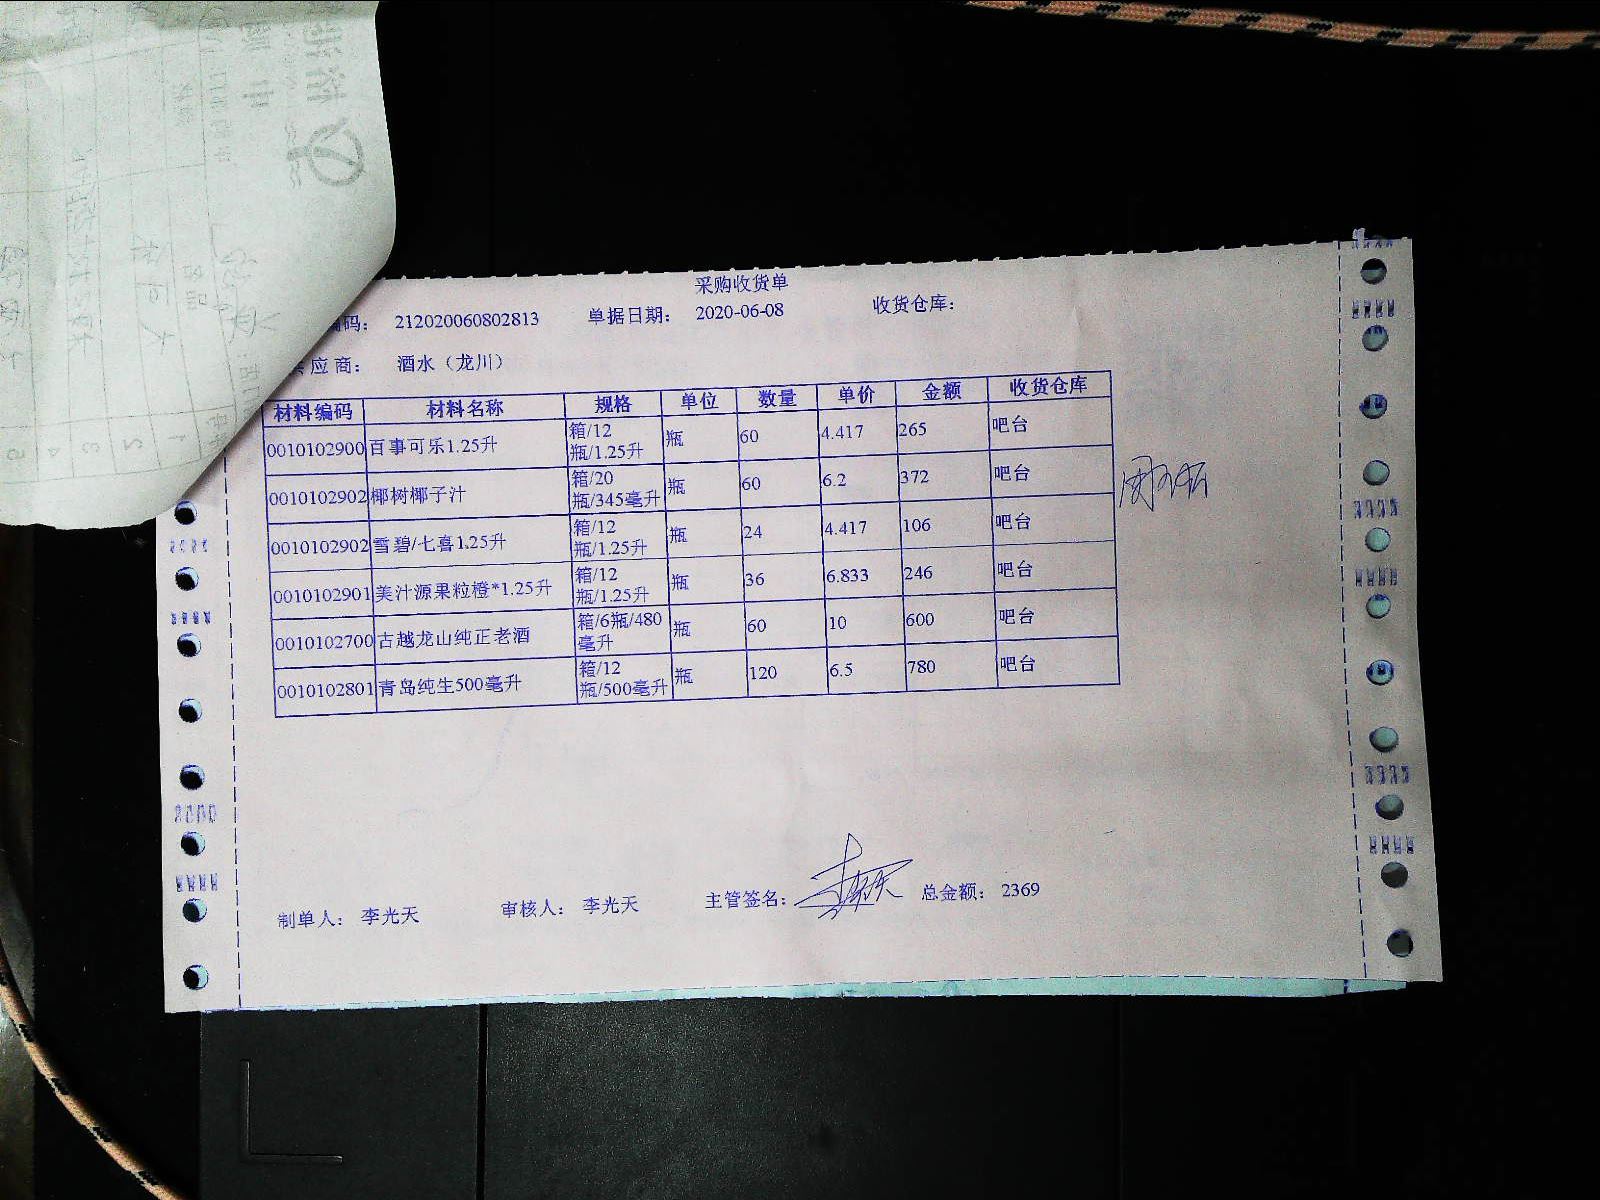 采购收货单
码： 212020060802813 单据日期： 2020-06-08 收货仓库：
应商： 酒水（龙川）
材料编码 材料名称 规格 单位 数量 单价 金额 收货仓库
0010102900 百事可乐1.25升 箱/12瓶/1.25升 瓶 60 4.417 265 吧台
0010102902 椰树椰子汁 箱/20瓶/345毫升 瓶 60 6.2 372 吧台
0010102902 雪碧/七喜1.25升 箱/12瓶/1.25升 瓶 24 4.417 106 吧台
0010102901 美汁源果粒橙*1.25升 箱/12瓶/1.25升 瓶 36 6.833 246 吧台
0010102700 古越龙山纯正老酒 箱/6瓶/480毫升 瓶 60 10 600 吧台
0010102801 青岛纯生500毫升 箱/12瓶/500毫升 瓶 120 6.5 780 吧台
制单人： 李光天 审核人： 李光天 主管签名： 总金额： 2369